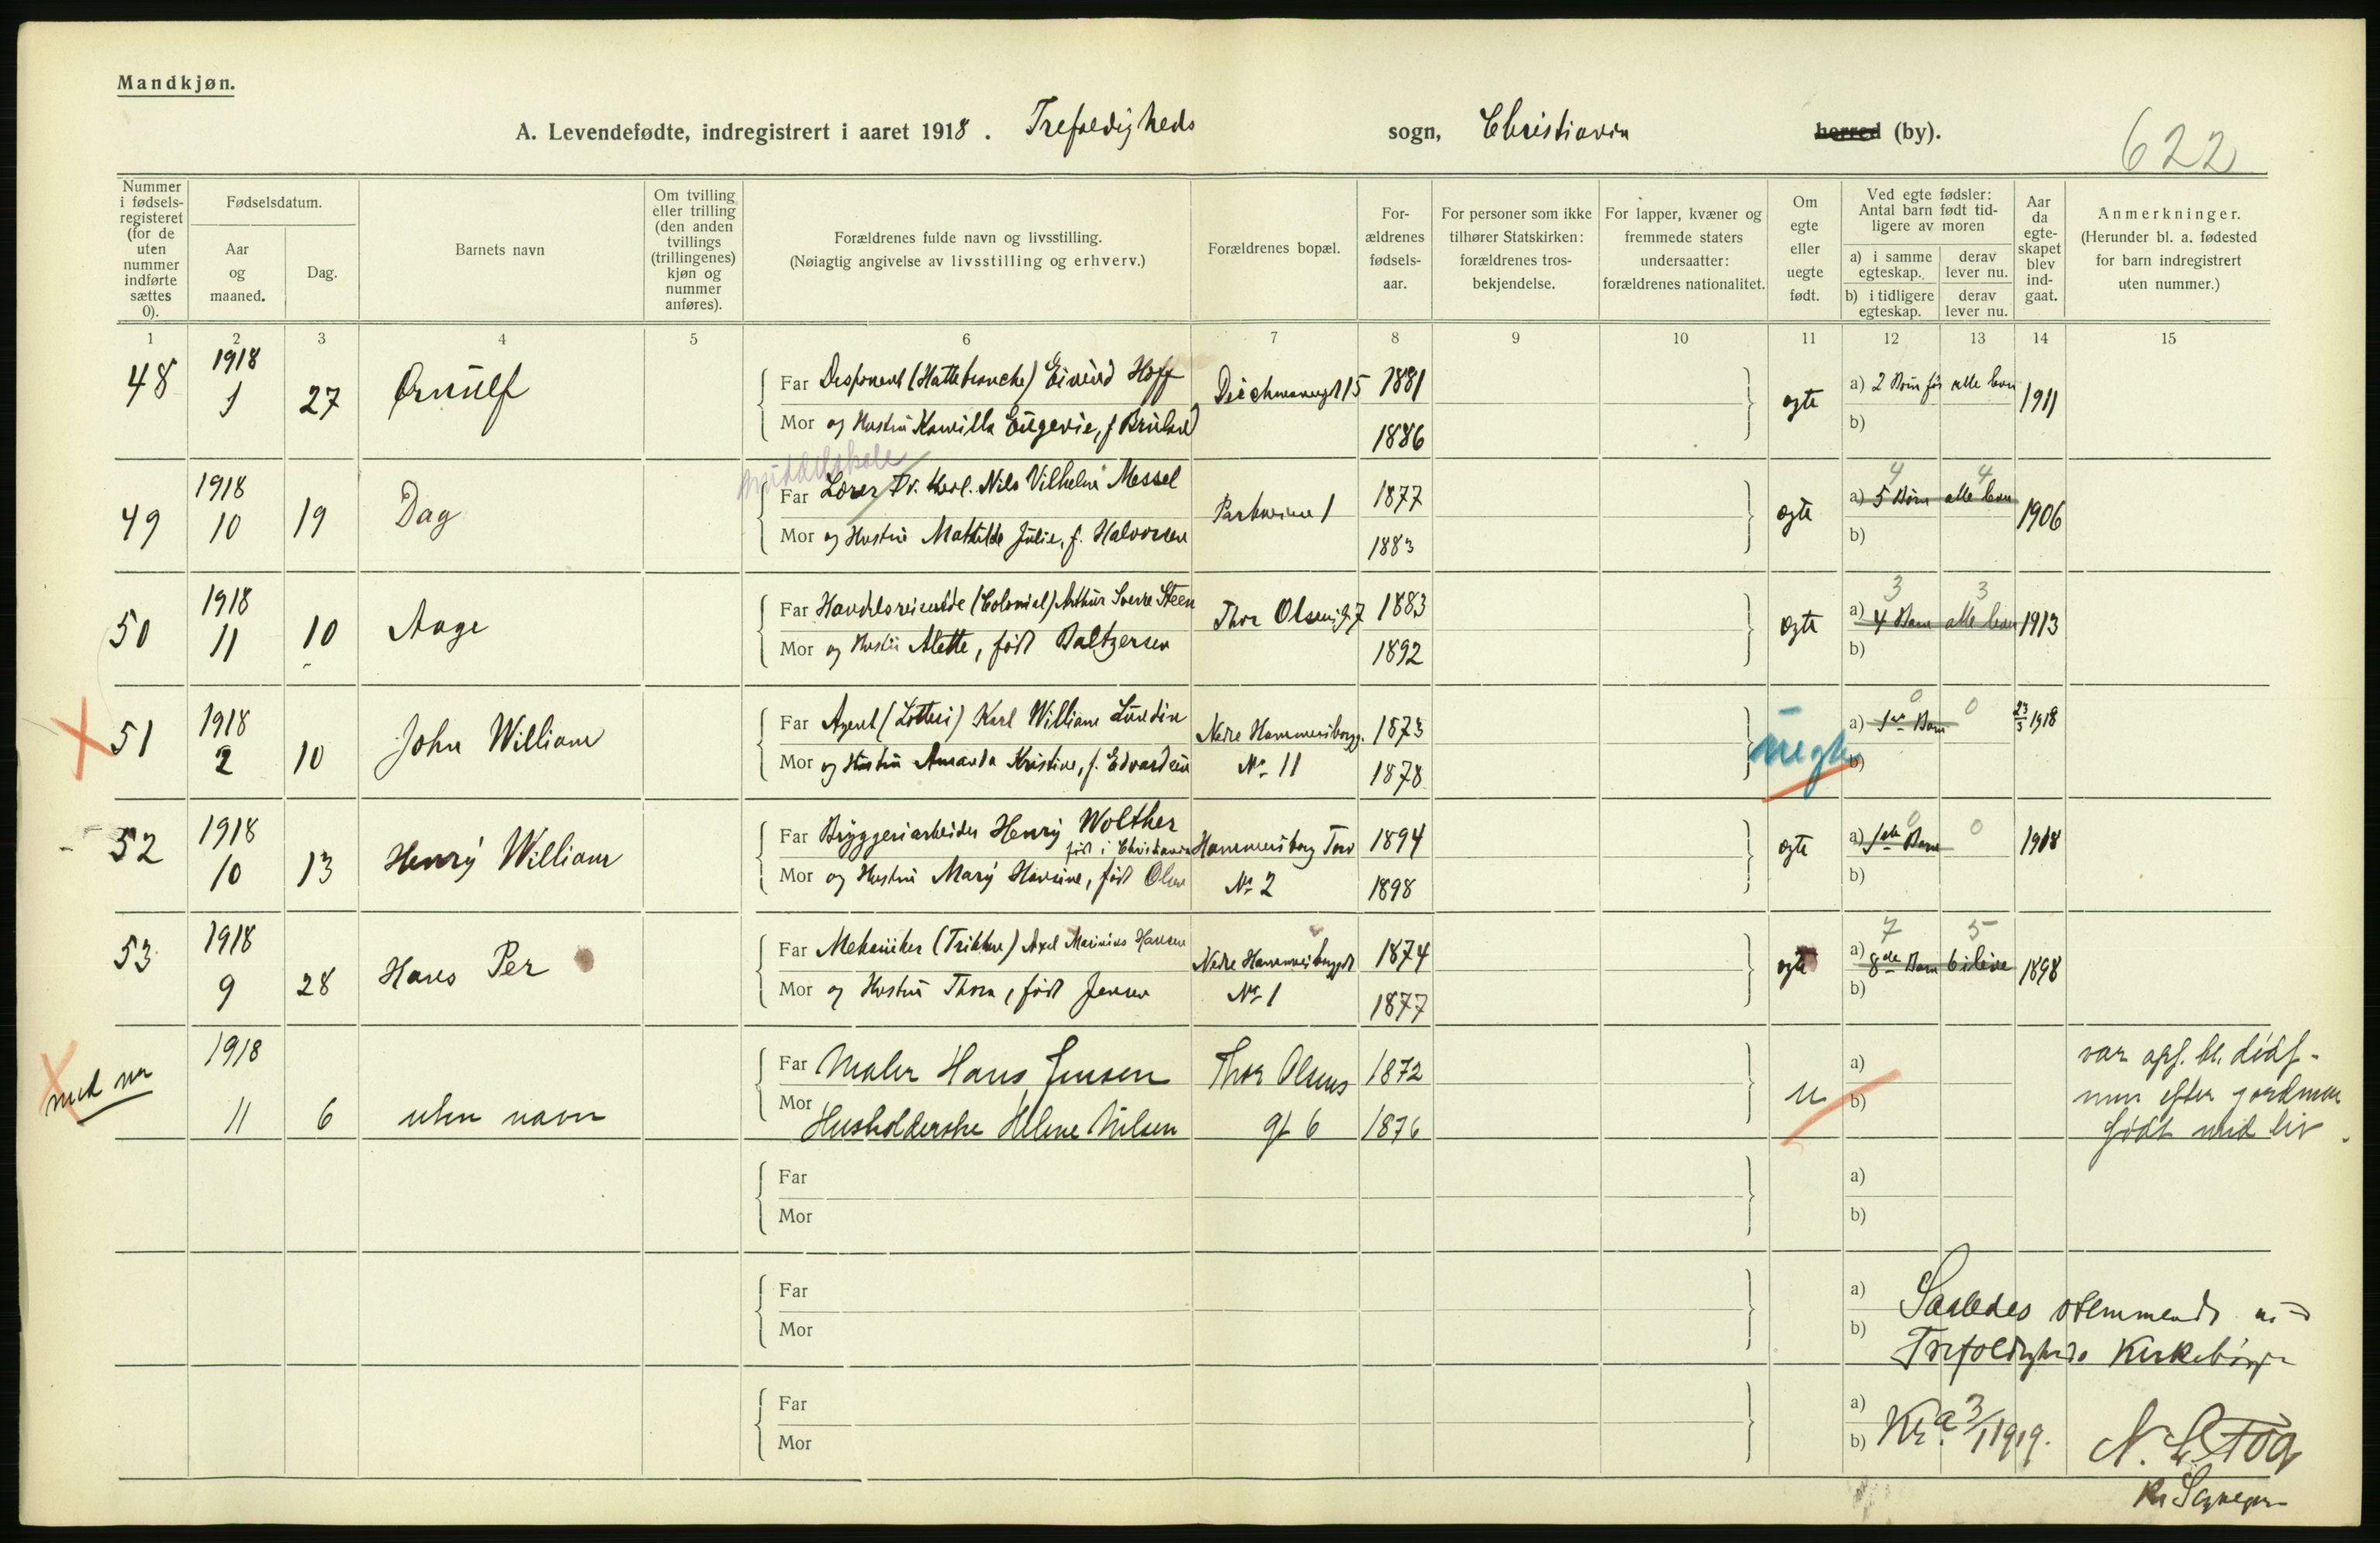 Mandkjøn.
A. Levendefødte, indregistrert i aaret 1918. Trefoldigheds sogn, Christiania herred (by).
622
Nummer i fødselsregisteret (for de uten nummer indførte sættes 0).
Fødselsdatum.
Aar og maaned.
Dag.
Barnets navn
Om tvilling eller trilling (den anden tvillings (trillingenes) kjøn og nummer anføres).
Forældrenes fulde navn og livsstilling.
(Nøiagtig angivelse av livsstilling og erhverv.)
Forældrenes bopæl.
Forældrenes fødselsaar.
For personer som ikke tilhører Statskirken: forældrenes trosbekjendelse.
For lapper, kvæner og fremmede staters undersaatter: forældrenes nationalitet.
Om egte eller uegte født.
Ved egte fødsler: Antal barn født tidligere av moren
a) i samme egteskap.
derav lever nu.
b) i tidligere egteskap.
derav lever nu.
Aar da egteskapet blev indgaat.
Anmerkninger.
(Herunder bl. a. fødested for barn indregistrert uten nummer.)
1 2 3 4 5 6 7 8 9 10 11 12 13 14 15
48 1918 1 27 Ørnulf
Far Disponent (Hattebranche) Eivind Hoff Deichmansgt 15 1881
Mor og Hustru Kamilla Eugenie, f. 1886
egte a) 2 Børn før alle leve 1911
b)
49 1918 10 19 Dag
middelskole
Far Lærer Nils Vilhelm Messel Parkveien 1 1877
Mor og Hustru Mathilde Julie, f. Halvorsen 1883
egte 4 4 a) 5 Børn alle leve 1906
b)
50 1918 11 10 Aage
Far Handelsreisende (Colonial) Arthur Sverre Steen Thor Olsens g. 7 1883
Mor og Hustru Alette, født Baltzersen 1892
egte 3 3 a) 4 Barn alle leve 1913
b)
51 1918 2 10 John William
Far Agent (Lotteri) Karl William Lundin Nedre Hammersborgg. 1873
Mor og Hustru Amanda Kristine, f. Edvardsen No 11 1878
uegte 0 0 a) 1ste Barn 23/3 1918
b)
52 1918 10 13 Henry William
Far Bryggeriarbeider Henry Wolther født i Christiania Hammersborg Torv 1894
Mor og Hustru Mary Hansine, født Olsen No 2 1898
egte 0 0 a) 1ste Barn 1918
b)
53 1918 9 28 Hans Per
Far Mekaniker (Trikken) Axel Marinius Hansen Nedre Hammersborggt 1874
Mor og Hustru Thora, født Jensen No 1 1877
egte 7 5 a) 8de Barn 6 i live 1898
b)
1918 11 6 uten navn
Far Maler Hans Jensen Thor Olsens 1872
Mor Husholderske Helene Nilsen gt 6 1876
u a)
b)
var opf. bl. dødf.
men efter jordmor
født med liv.
Far a)
Mor b)
Far a)
Mor b)
Far a)
Mor b)
Saaledes stemmende m
Trefoldigheds Kirkebøger
Kr.a 3/1 1919.